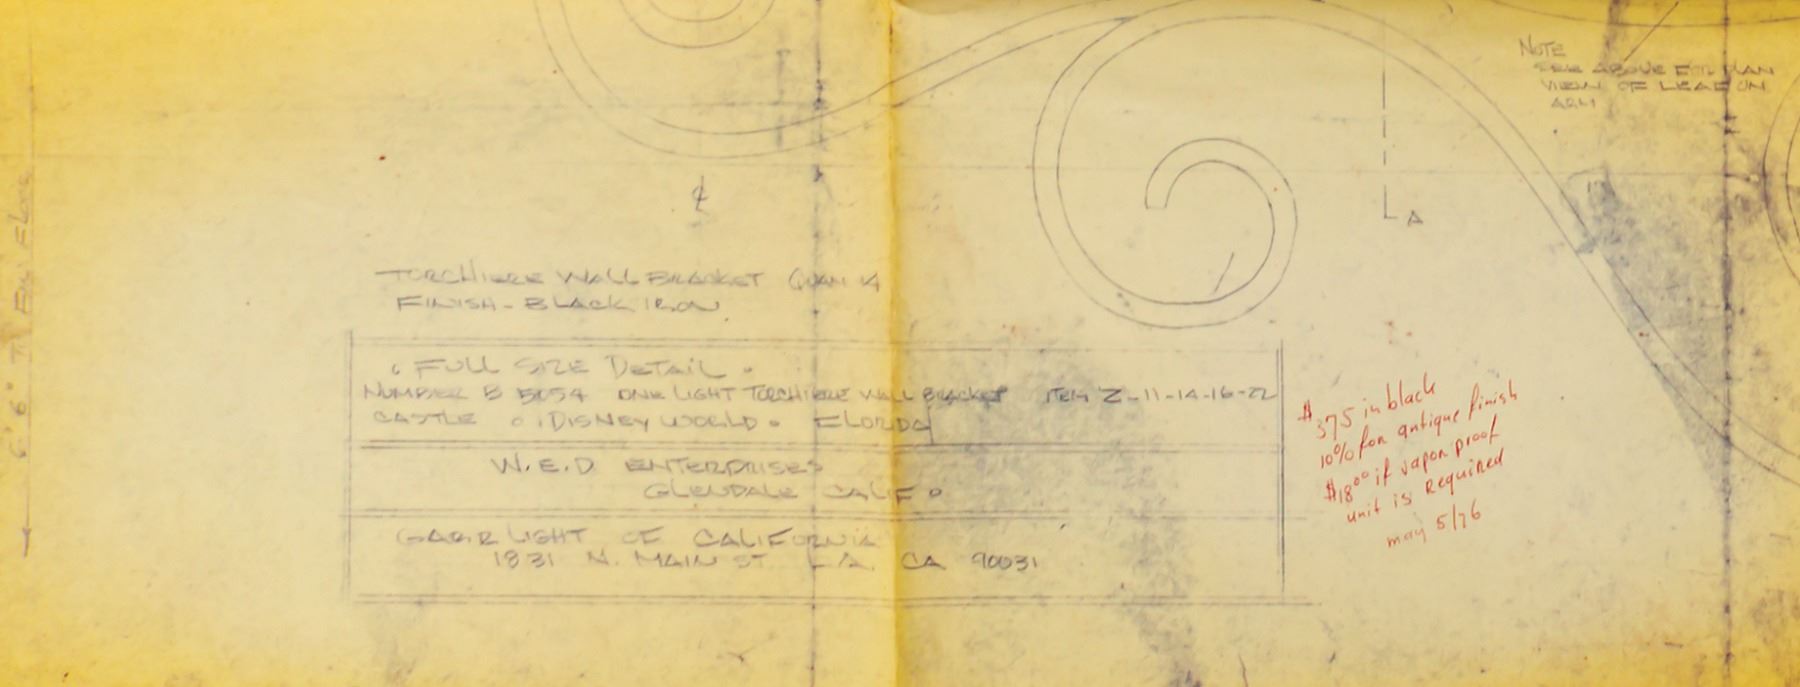 NOTE
SEE ABOVE FOR PLAN
VIEW OF LEAF ON
ARM
A
6'6" To Fin Floor
TORCHIERE WALL BRACKET QUAN 14
FINISH - BLACK IRON
FULL SIZE DETAIL
NUMBER B 5054 ONE LIGHT TORCHIERE WALL BRACKET ITEM Z-11-14-16-22
CASTLE DISNEY WORLD FLORIDA
W.E.D ENTERPRISES
GLENDALE CALIF
LIGHT OF CALIFORNIA
1831 N. MAIN ST L.A. CA 90031
$375 in black
10% for antique finish
$18⁰⁰ if vapor proof
unit is Required
may 5/76